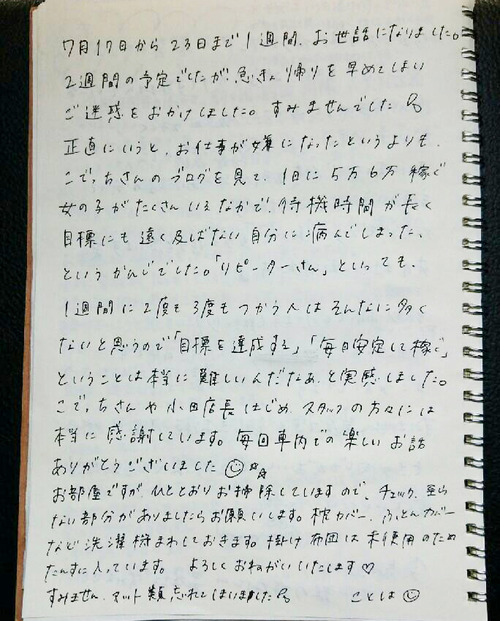 7月17日から23日まで1週間、お世話になりました。
2週間の予定でしたが、急きょ帰りを早めてしまい
ご迷惑をおかけしました。すみませんでした
正直にいうと、お仕事が嫌になったというよりも、
こでっちさんのブログを見て、1日に5万6万稼ぐ
女の子がたくさんいるなかで、待機時間が長く
目標にも遠く及ばない自分に病んでしまった、
というかんじでした。「リピーターさん」といっても、
1週間に2度も3度もつかう人はそんなに多く
ないと思うので「目標を達成する」「毎日安定して稼ぐ」
ということは本当に難しいんだなあ、と実感しました。
こでっちさんや小田店長はじめ、スタッフの方々には
本当に感謝しています。毎回車内での楽しいお話
ありがとうございました
お部屋ですが、ひととおりお掃除していますので、チェック、至ら
ない部分がありましたらお願いします。枕カバー、ふとんカバー
など洗濯機まわしておきます。掛け布団は未使用のため
たんすに入っています。 よろしくおねがいいたします♡
すみません、マット類忘れてしまいました ことは